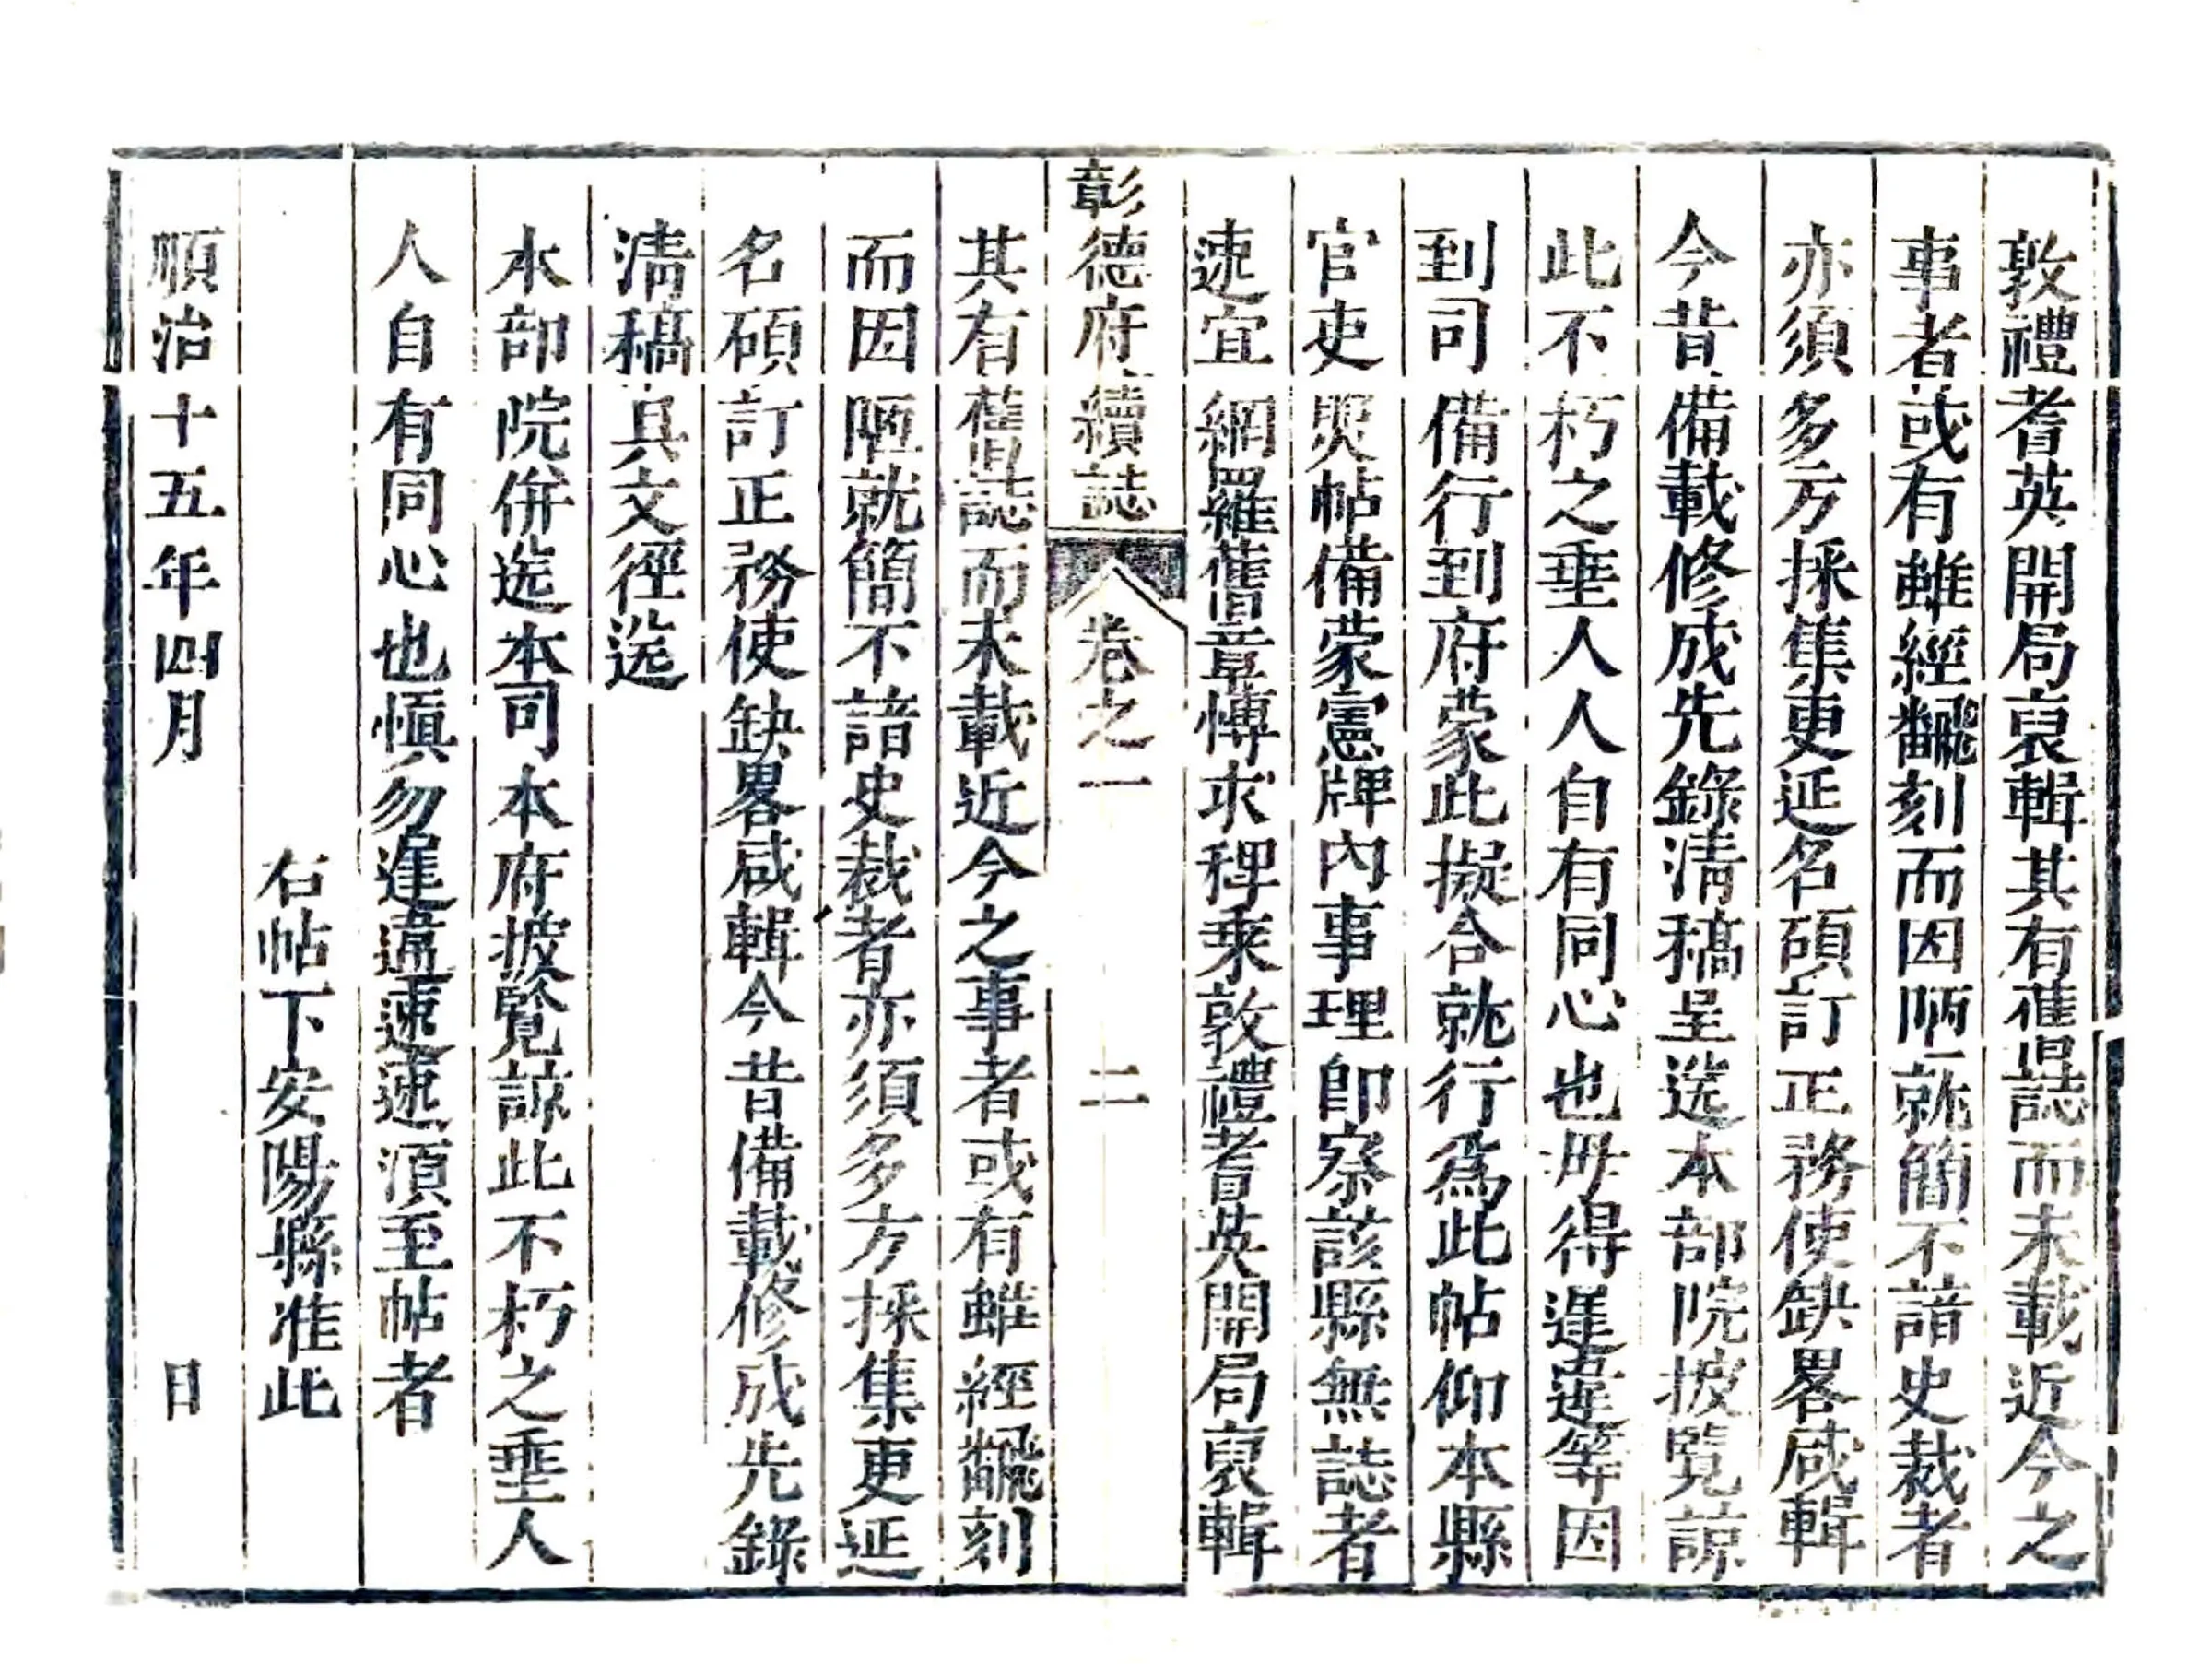 敦禮耆英開局裒輯其有舊誌而未載近今之
事者或有雖經飜刻而因陋就簡不諳史裁者
亦須多方採集更延名碩訂正務使缺畧咸輯
今昔備載修成先錄清稿呈送本部院披覽諒
此不朽之垂人人自有同心也毋得遲違等因
到司備行到府蒙此擬合就行爲此帖仰本縣
官吏照帖備蒙憲牌內事理卽察該縣無誌者
速宜網羅舊章博求稗乘敦禮耆英開局裒輯
彰德府續誌 卷之一 二
其有舊誌而未載近今之事者或有雖經飜刻
而因陋就簡不諳史裁者亦須多方採集更延
名碩訂正務使缺畧咸輯今昔備載修成先錄
清稿具文徑送
本部院併送本司本府披覽諒此不朽之垂人
人自有同心也愼勿遲違速速湏至帖者
右帖下安陽縣准此
順治十五年四月 日